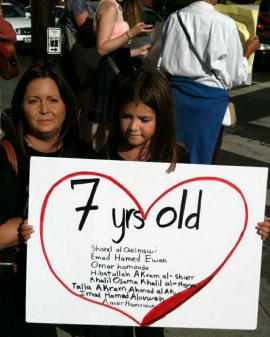 7 yrs old
Shahd al Qeinawi
Emad Hamed Ewan
Omar hamouda
Hibatallah Akram al-Shaer
Khalil Osama Khalil al-
Talla Akram Ahmad al
Imad Hamed Alowwein
Amer